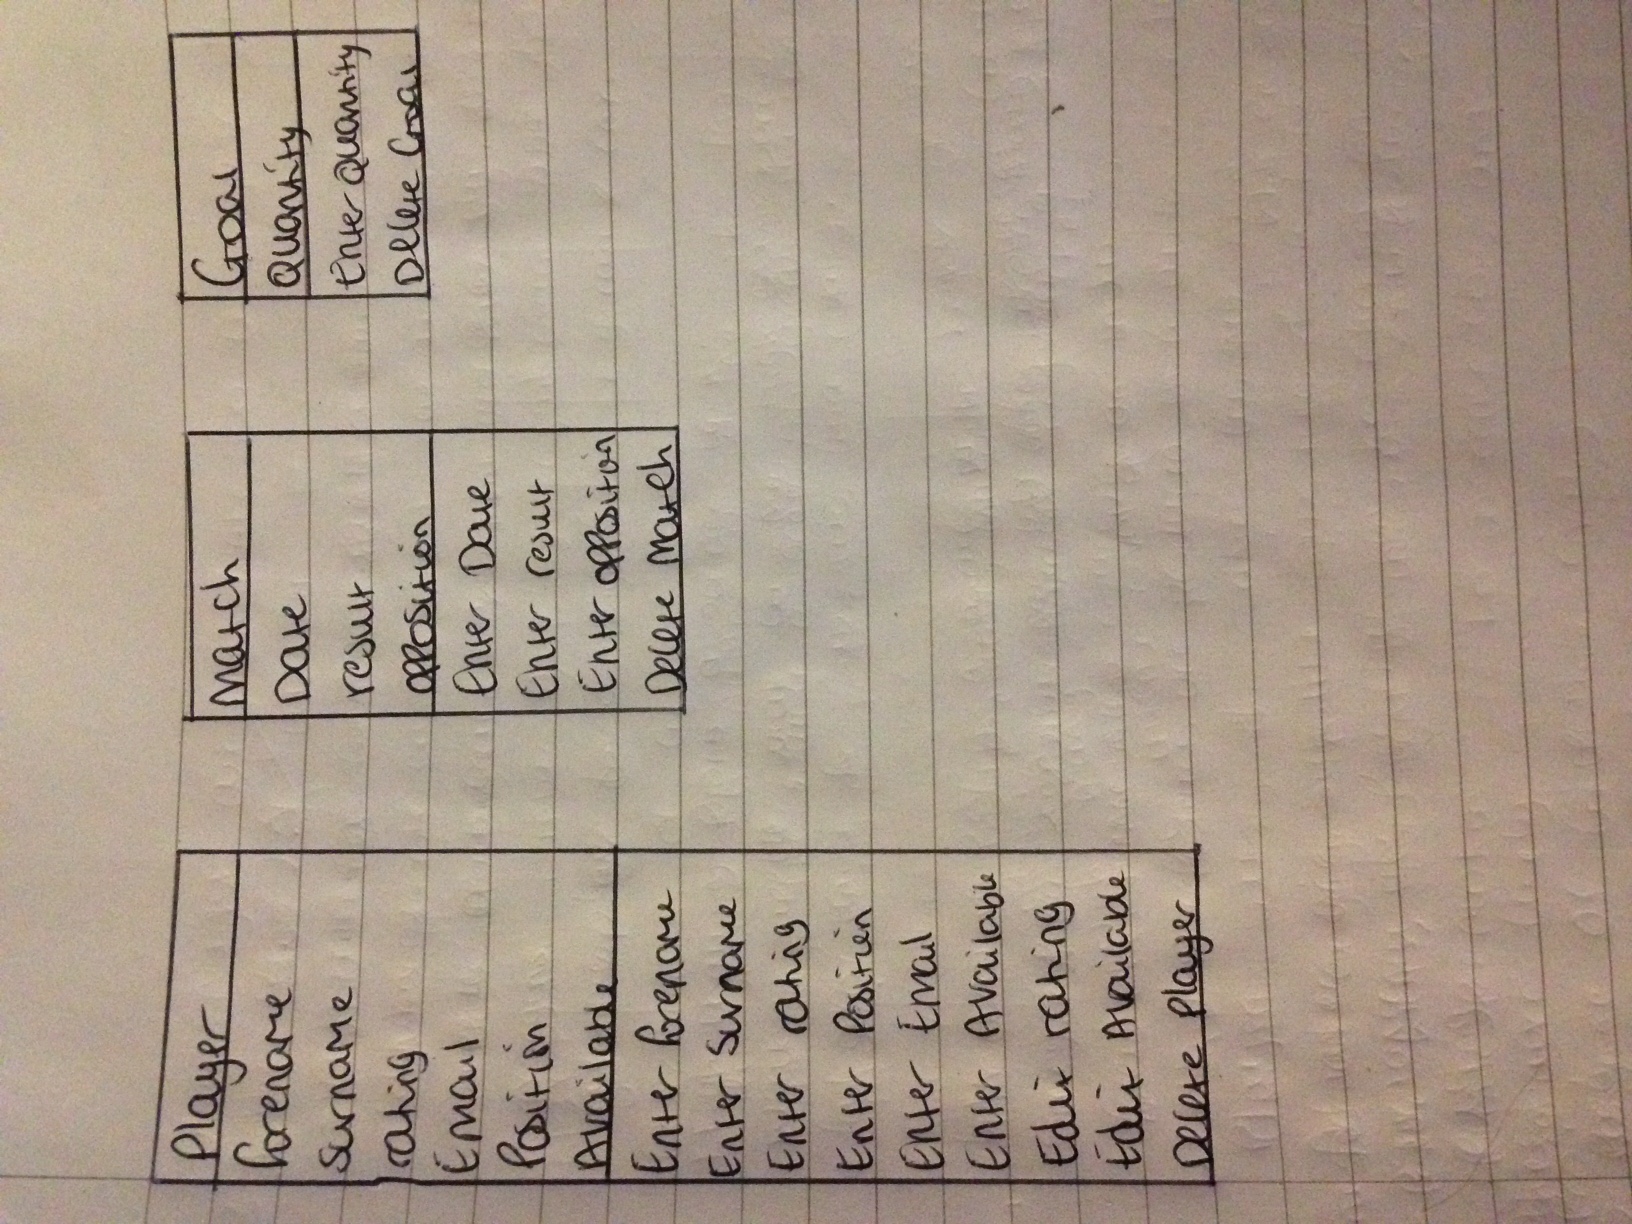 Player
forename
Surname
rating
Email
Position
Available
Enter forename
Enter Surname
Enter rating
Enter Position
Enter Email
Enter Available
Edit rating
Edit Available
Delete Player
Match
Date
result
opposition
Enter Date
Enter result
Enter opposition
Delete Match
Goal
Quantity
Enter Quantity
Delete Goal